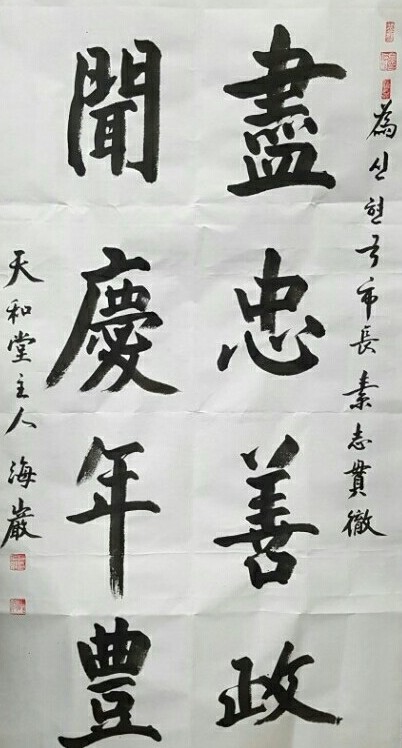 為신현국市長素志貫徹
盡忠善政
聞慶年豊
天和堂主人海巖